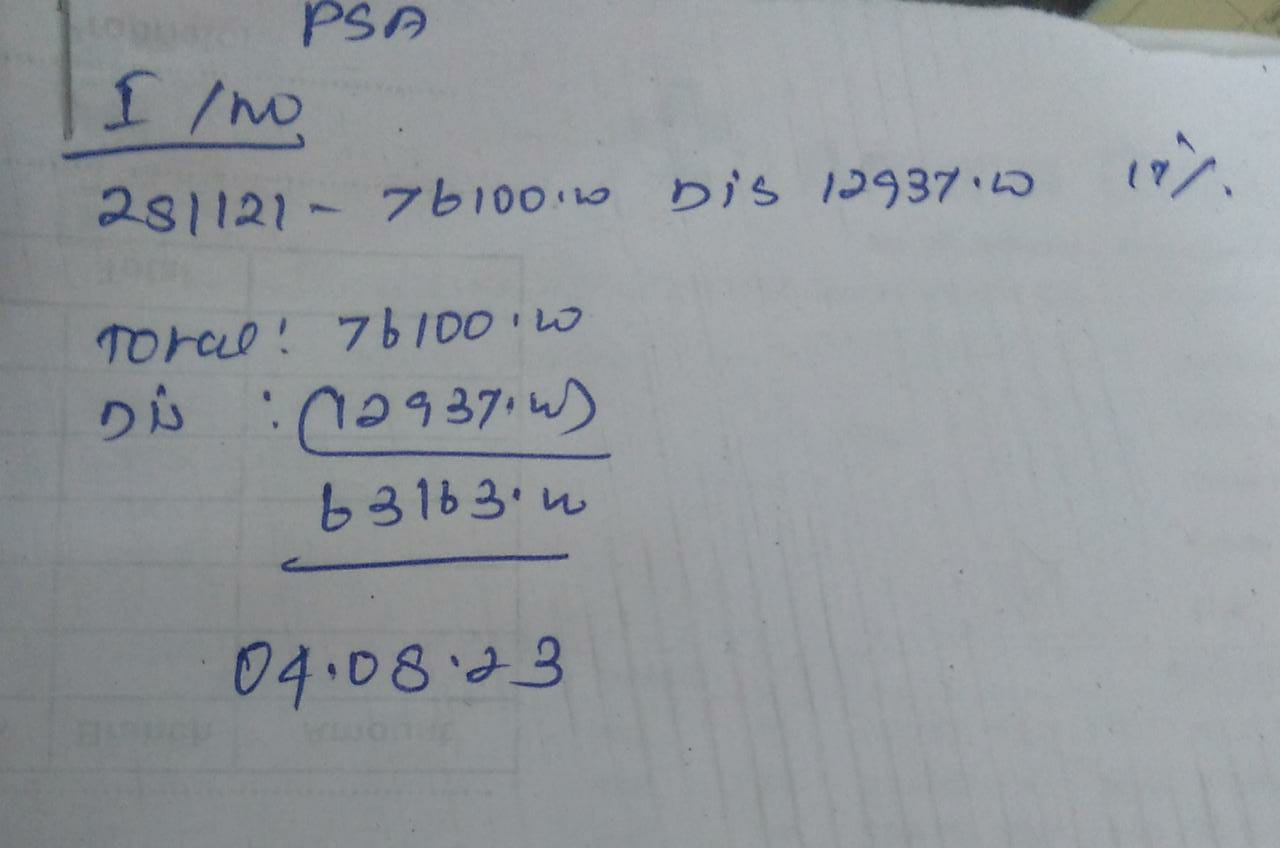 PSA
I/no
281121 - 76100.00 Dis 12937.00 17%.
Total: 76100.00
Dis : (12937.00)
63163.00
04.08.23